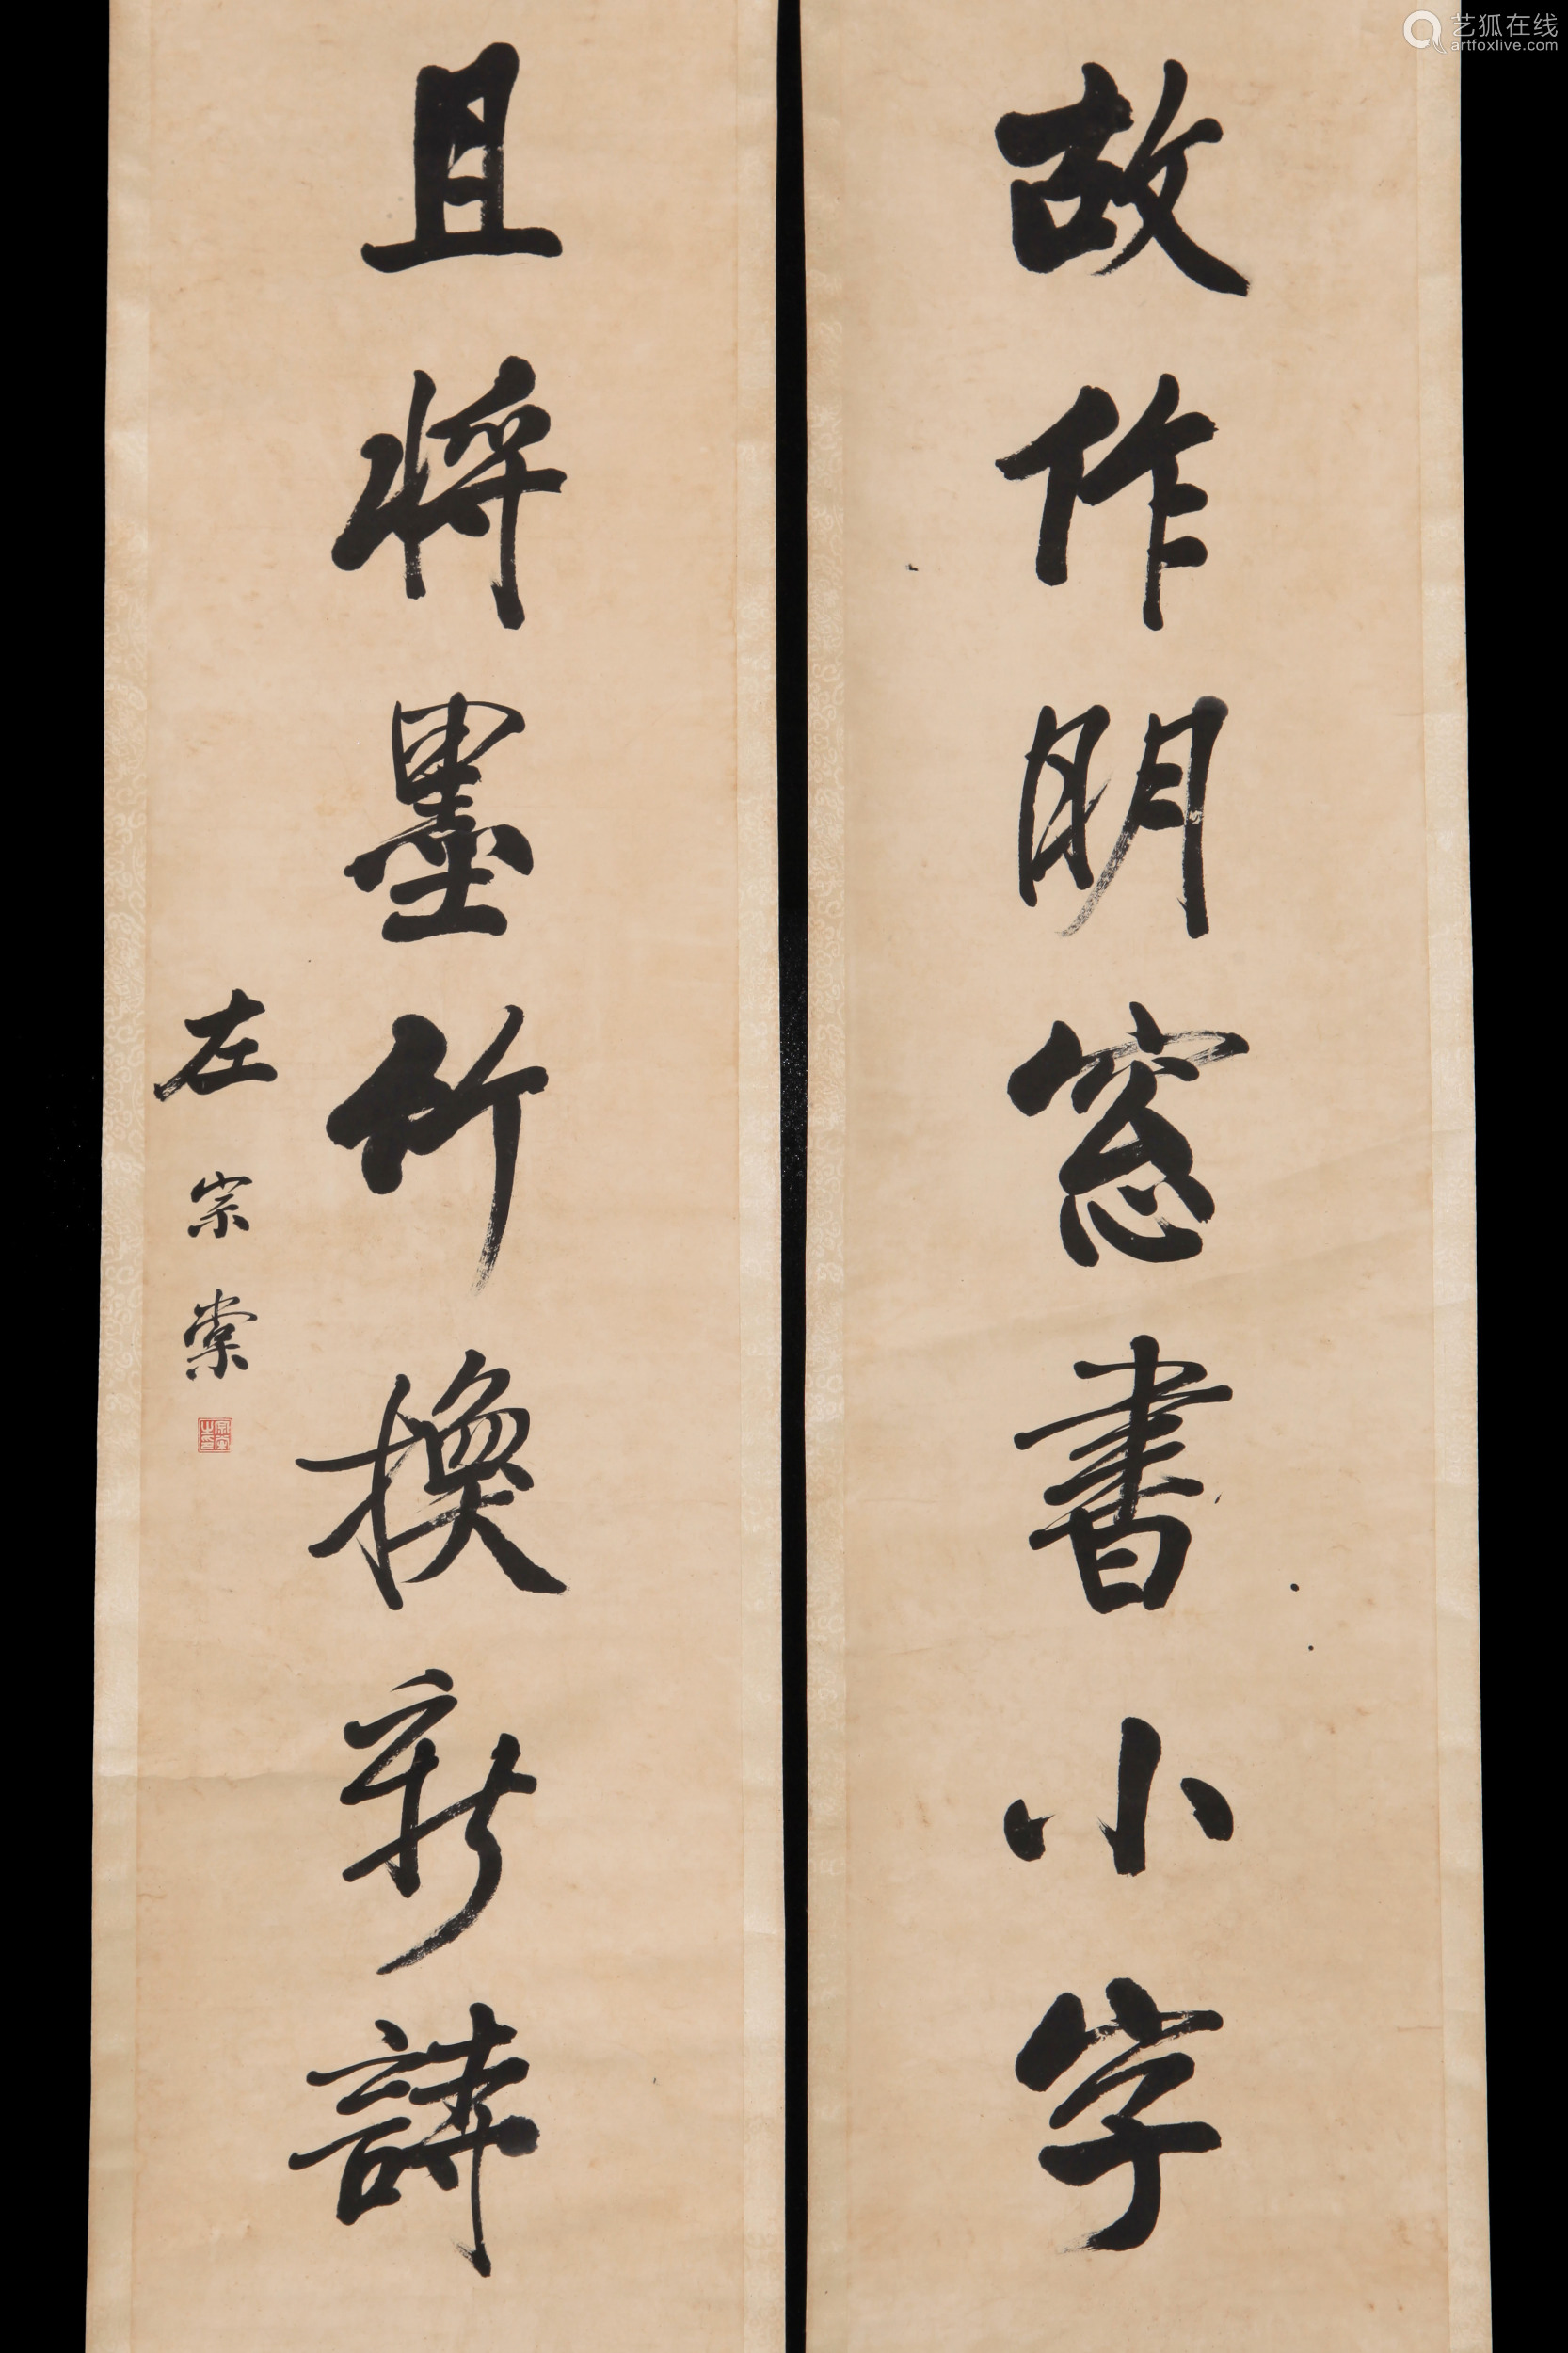 故作明窓書小字
且将墨竹換新詩
左宗棠
艺狐在线
artfoxlive.com